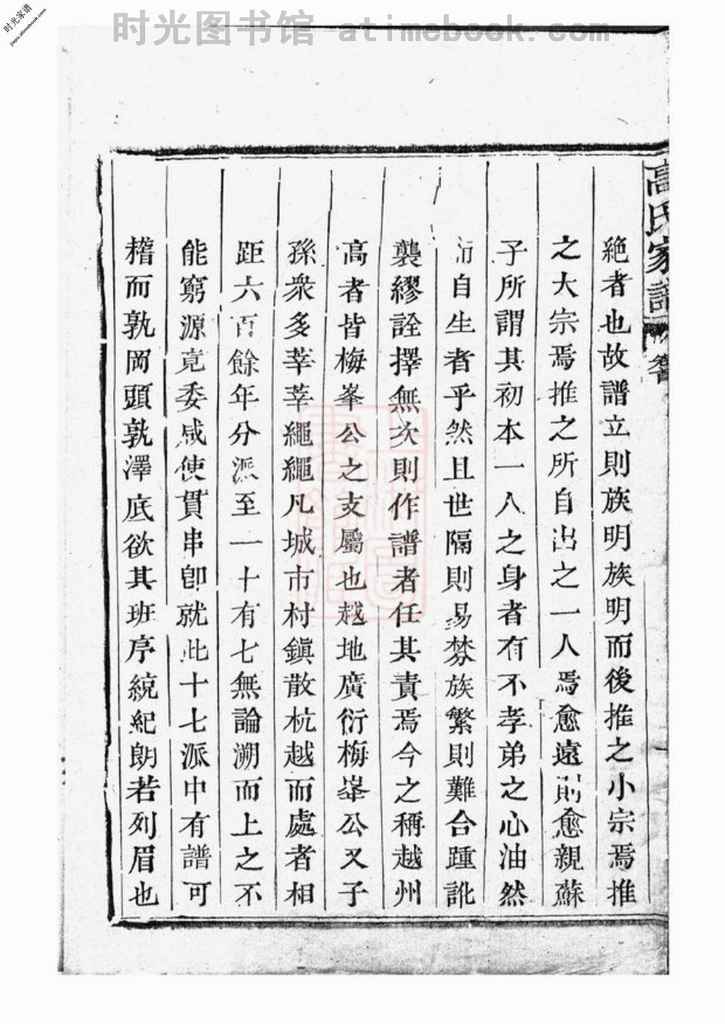 时光图书馆 atimebook.com
时光家谱
高氏家譜
絶者也故譜立則族明族明而後推之小宗焉推
之大宗焉推之所自出之一人焉愈遠則愈親蘇
子所謂其初本一人之身者有不孝弟之心油然
而自生者乎然且世隔則易棼族繁則難合踵訛
襲繆詮擇無次則作譜者任其責焉今之稱越州
高者皆梅峯公之支屬也越地廣衍梅峯公又子
孫衆多莘莘繩繩凡城市村鎭散杭越而處者相
距六百餘年分派至一十有七無論溯而上之不
能窮源竟委咸使貫串卽就此十七派中有譜可
稽而孰岡頭孰澤底欲其班序統紀朗若列眉也